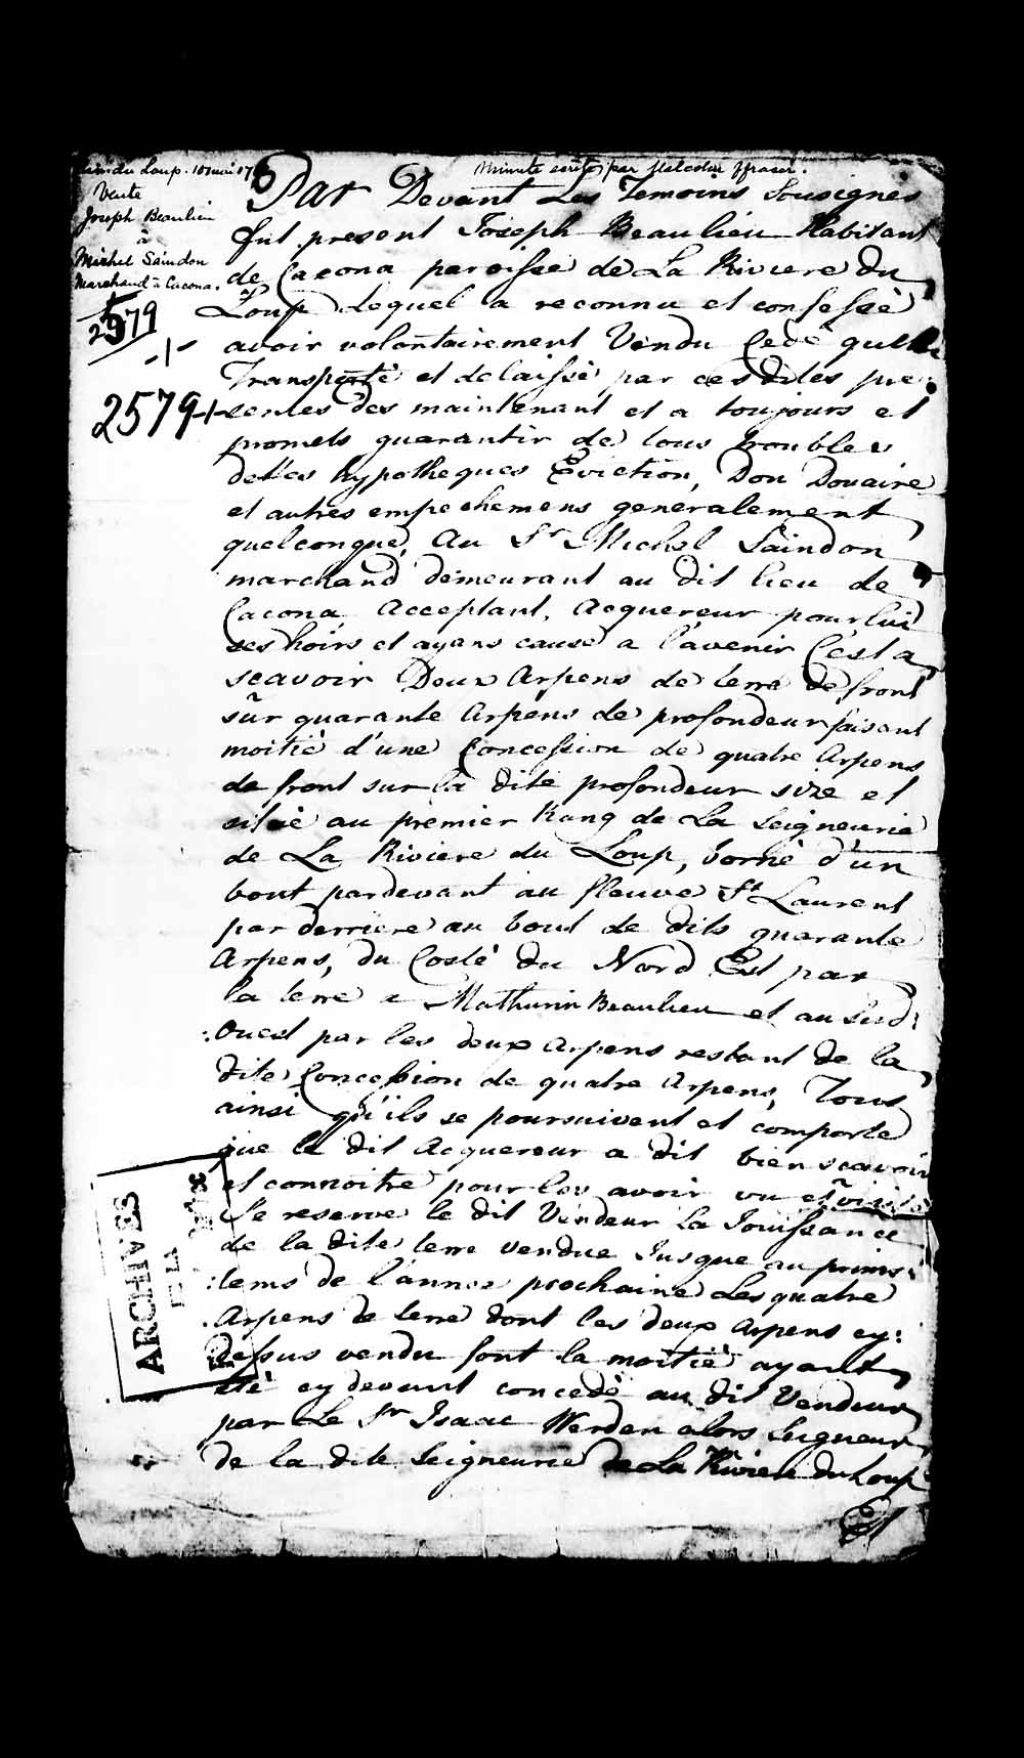 du Loup. 10 mai 17
Vente
Joseph Beaulieu
à
Michel Saindon
Marchand à Cacona.
2579
2579
Minute écrite par Malcolm ffraser.
Par Devant Les Temoins Sousignés
fut present Joseph Beaulieu Habitant
de Cacona paroisse de La Riviere du
Loup Lequel a reconnu et confessé
avoir volontairement Vendu Cedé quitté
Transporté et delaissé par ces dites pre:
sentes des maintenant et a toujours et
promets guarantir de tous troubles
dettes hypotheques Eviction, Don Douaire
et autres empechemens generalement
quelconque, Au Sr Michel Saindon
marchand demeurant au dit lieu de
Cacona, Acceptant, Acquereur pour lui
ses hoirs et ayans cause a l'avenir C'est a
scavoir Deux Arpens de terre de front
sur quarante Arpens de profondeur faisant
moitié d'une Concession de quatre Arpens
de front sur la dite profondeur size et
situé au premier Rang de La Seigneurie
de La Riviere du Loup, borné d'un
bout pardevant au fleuve St Laurent
par derriere au bout de dits quarante
Arpens, du Costé du Nord Est par
la terre a Mathurin Beaulieu et au Sud:
:Ouest par les deux Arpens restant de la
dite Concession de quatre Arpens, Tous
ainsi qu'ils se poursuivent et comporte
que le dit Acquereur a dit bien scavoir
et connoitre pour les avoir vu et visité
Se reserve le dit Vendeur La Jouissance
de la dite terre vendue Jusque au prins:
:tems de l'année prochaine Les quatre
Arpens de terre dont les deux Arpens cy:
dessus vendu font la moitié ayant
été cy devant concedé au dit Vendeur
par Le Sr Isaac Werden alors Seigneur
de la dite Seigneurie de La Riviere du Loup
Et
ARCHIVES